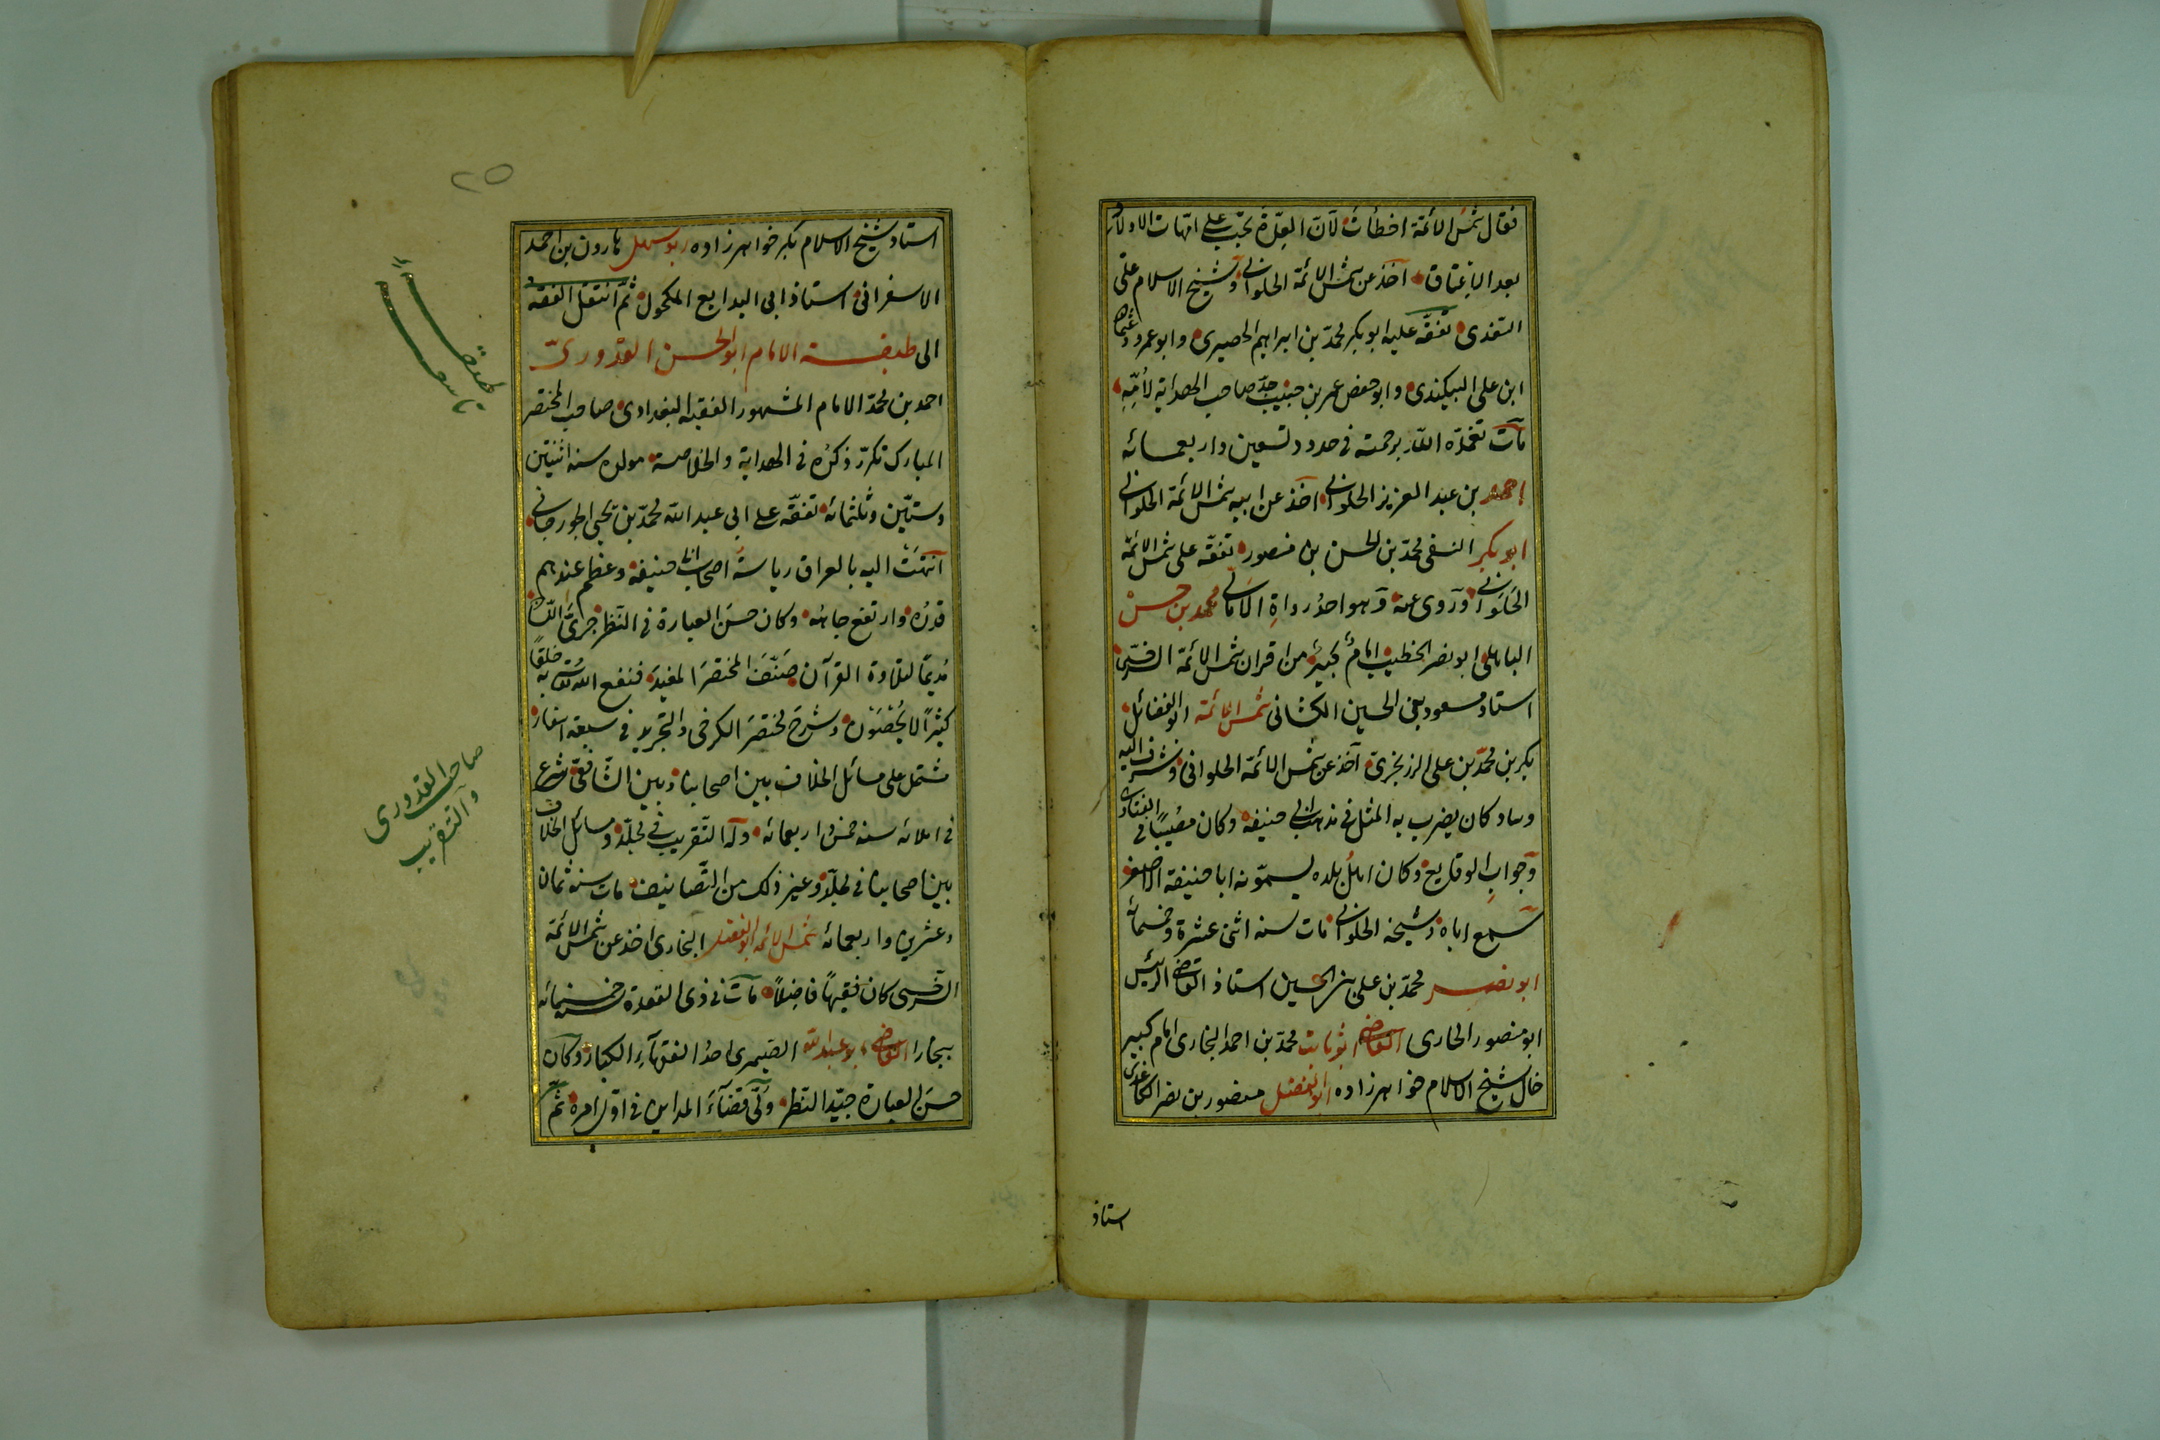 فقال شمس الائمة اخطأت لان العدة تجب على امهات الاولاد
بعد الاعتاق اخذ عن شمس الائمة الحلوانى وشيخ الاسلام على
السغدى تفقه عليه ابو بكر محمد بن ابراهيم الحصيرى وابو عمرو عثمان
ابن على البيكندى وابو حفص عمر بن حبيب جد صاحب الهداية لأمه
مات تغمده الله برحمته فى حدود تسعين واربعمائه
احمد بن عبد العزيز الحلوانى اخذ عن ابيه شمس الائمة الحلوانى
ابو بكر النسفى محمد بن الحسن بن منصور تفقه على شمس الائمة
الحلوانى وروى عنه وهو احد رواة الامالى محمد بن حسن
ابو نصر الخطيب امام كبير من اقران شمس الائمة السرخسى
استاد مسعود بن الحسين الكشانى شمس الائمة ابو الفضائل
بكر بن محمد بن على الزرنجرى اخذ عن شمس الائمة الحلوانى
وساد كان يضرب به المثل فى مذهب ابى حنيفه وكان مصيبا فى الفتاوى
وجواب الوقايع وكان اهل بلده يسمونه ابا حنيفة الاصغر
سمع اباه وشيخه الحلوانى مات سنه اثنى عشرة وخمسمائه
ابو نصر محمد بن على بن الحسين استاذ القاضى الرئيس
ابو منصور الحارى القاضى ابو ثابت محمد بن احمد البخارى امام كبير
خال شيخ الاسلام خواهر زاده ابو الفضل منصور بن نصر الكاغدى
استاذ
٢٥
استاد شيخ الاسلام بكر خواهر زاده ابو سهل هارون بن احمد
الاسفرانى استاذ ابى البدايع المكحول ثم انتقل الفقه
الى طبقة الامام ابو الحسن القدورى
احمد بن محمد الامام المشهور الفقيه البغدادى صاحب المختصر
المبارك تكرر ذكره فى الهداية والخلاصة مولده سنه اثنتين
وستين وثلثمائه تفقه على ابى عبد الله محمد بن يحيى الجورجانى
انتهت اليه بالعراق رياسة اصحاب ابى حنيفه وعظم عندهم
قدره وارتفع جاهه وكان حسن العبارة فى النظر جرئ اللسان
مديما لتلاوة القرآن صنف المختصر المفيد فنفع الله تعالى به خلقا
كثيرا لا يحصون وشرح مختصر الكرخى والتجريد فى سبعة اسفار
مشتمل على مسائل الخلاف بين اصحابنا وبين الشافعى شرع
فى املائه سنه خمس واربعمائه وله التقريب فى مجلد ومسائل الخلاف
بين اصحابنا فى مجلد وغير ذلك من التصانيف مات سنه ثمان
وعشرين واربعمائه شمس الائمه ابو الفضل البخارى اخذ عن شمس الائمة
السرخسى كان فقيها فاضلا مات فى ذى القعدة خمسمائه
ببخارا القاضى ابو عبد الله الصيمرى احد الفقهاء الكبار وكان
حسن العبارة جيد النظر ولى قضاء المداين فى اول امره ثم
طبقه
تاسعه
صاحب القدورى
والتقريب